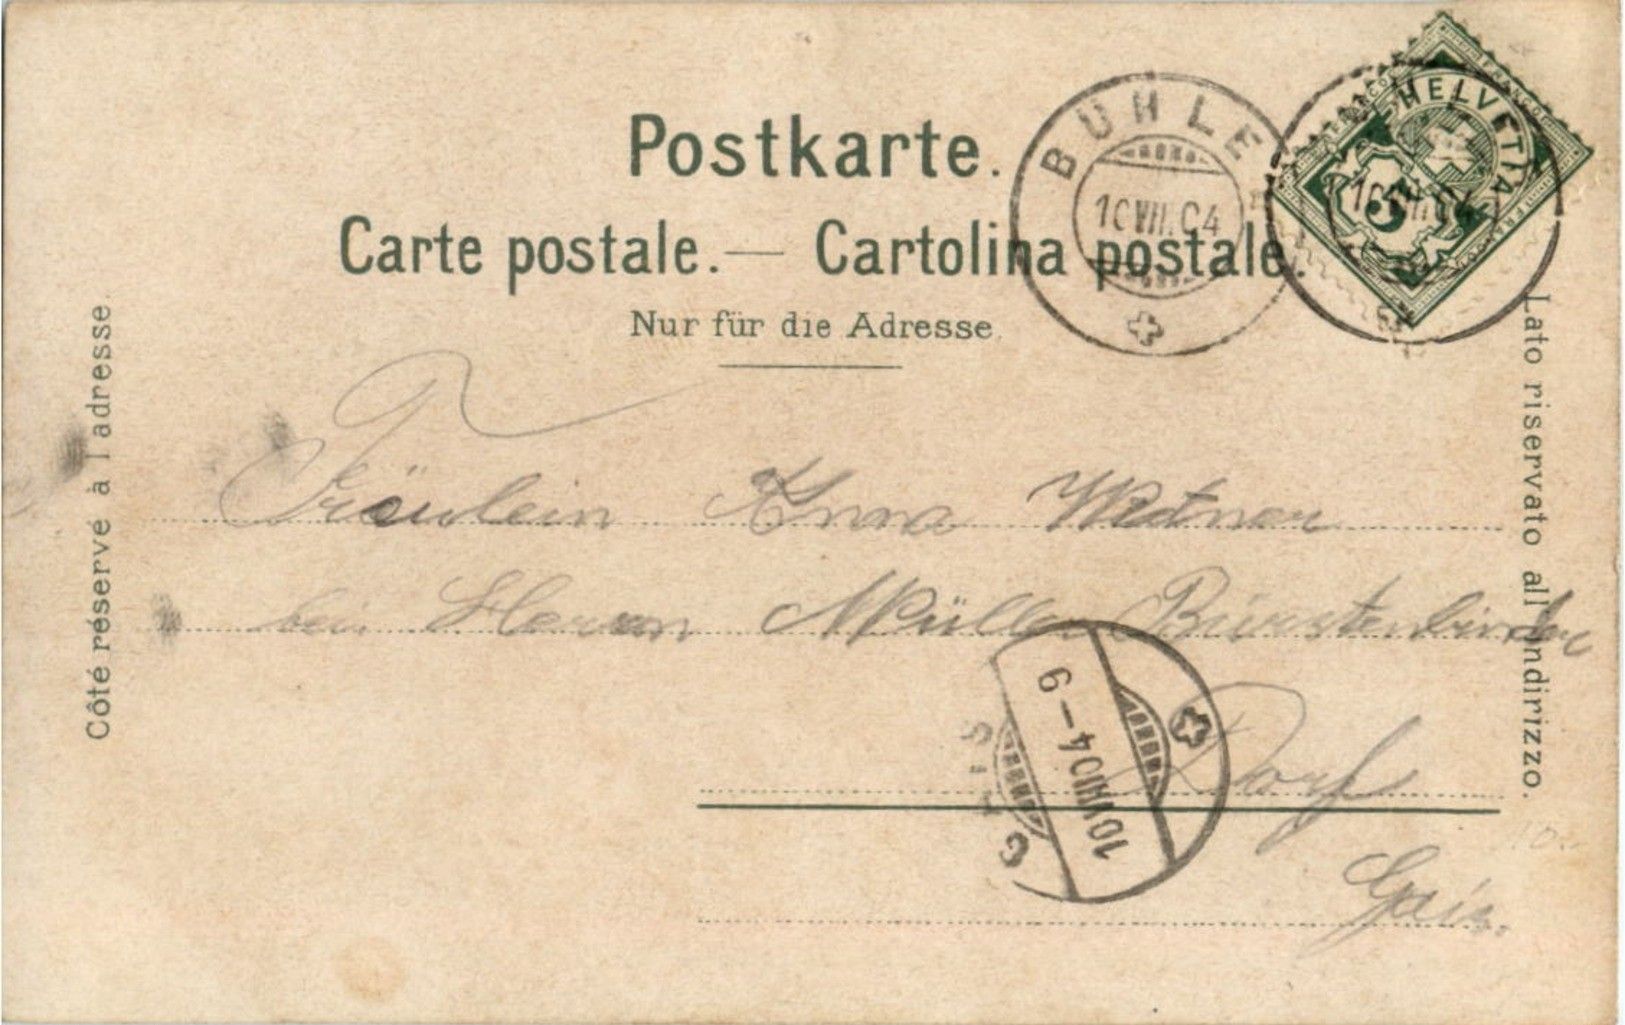 Postkarte.
Carte postale. — Cartolina postale.
Nur für die Adresse.
BÜHLE
10 VIII.04
HELVETIA
FRANCO
5
Côté réservé à l'adresse.
Lato riservato all'indirizzo.
Fräulein Anna
bei Herrn Müller Bürstenbinder
Dorf
Gais.
10 VIII 04 – 9
GAIS